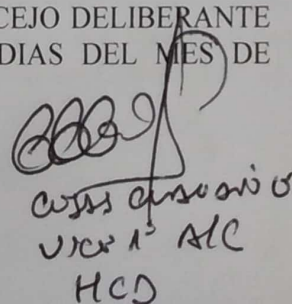 CEJO DELIBERANTE
DIAS DEL MES DE
VICE 1º A/C
HCD